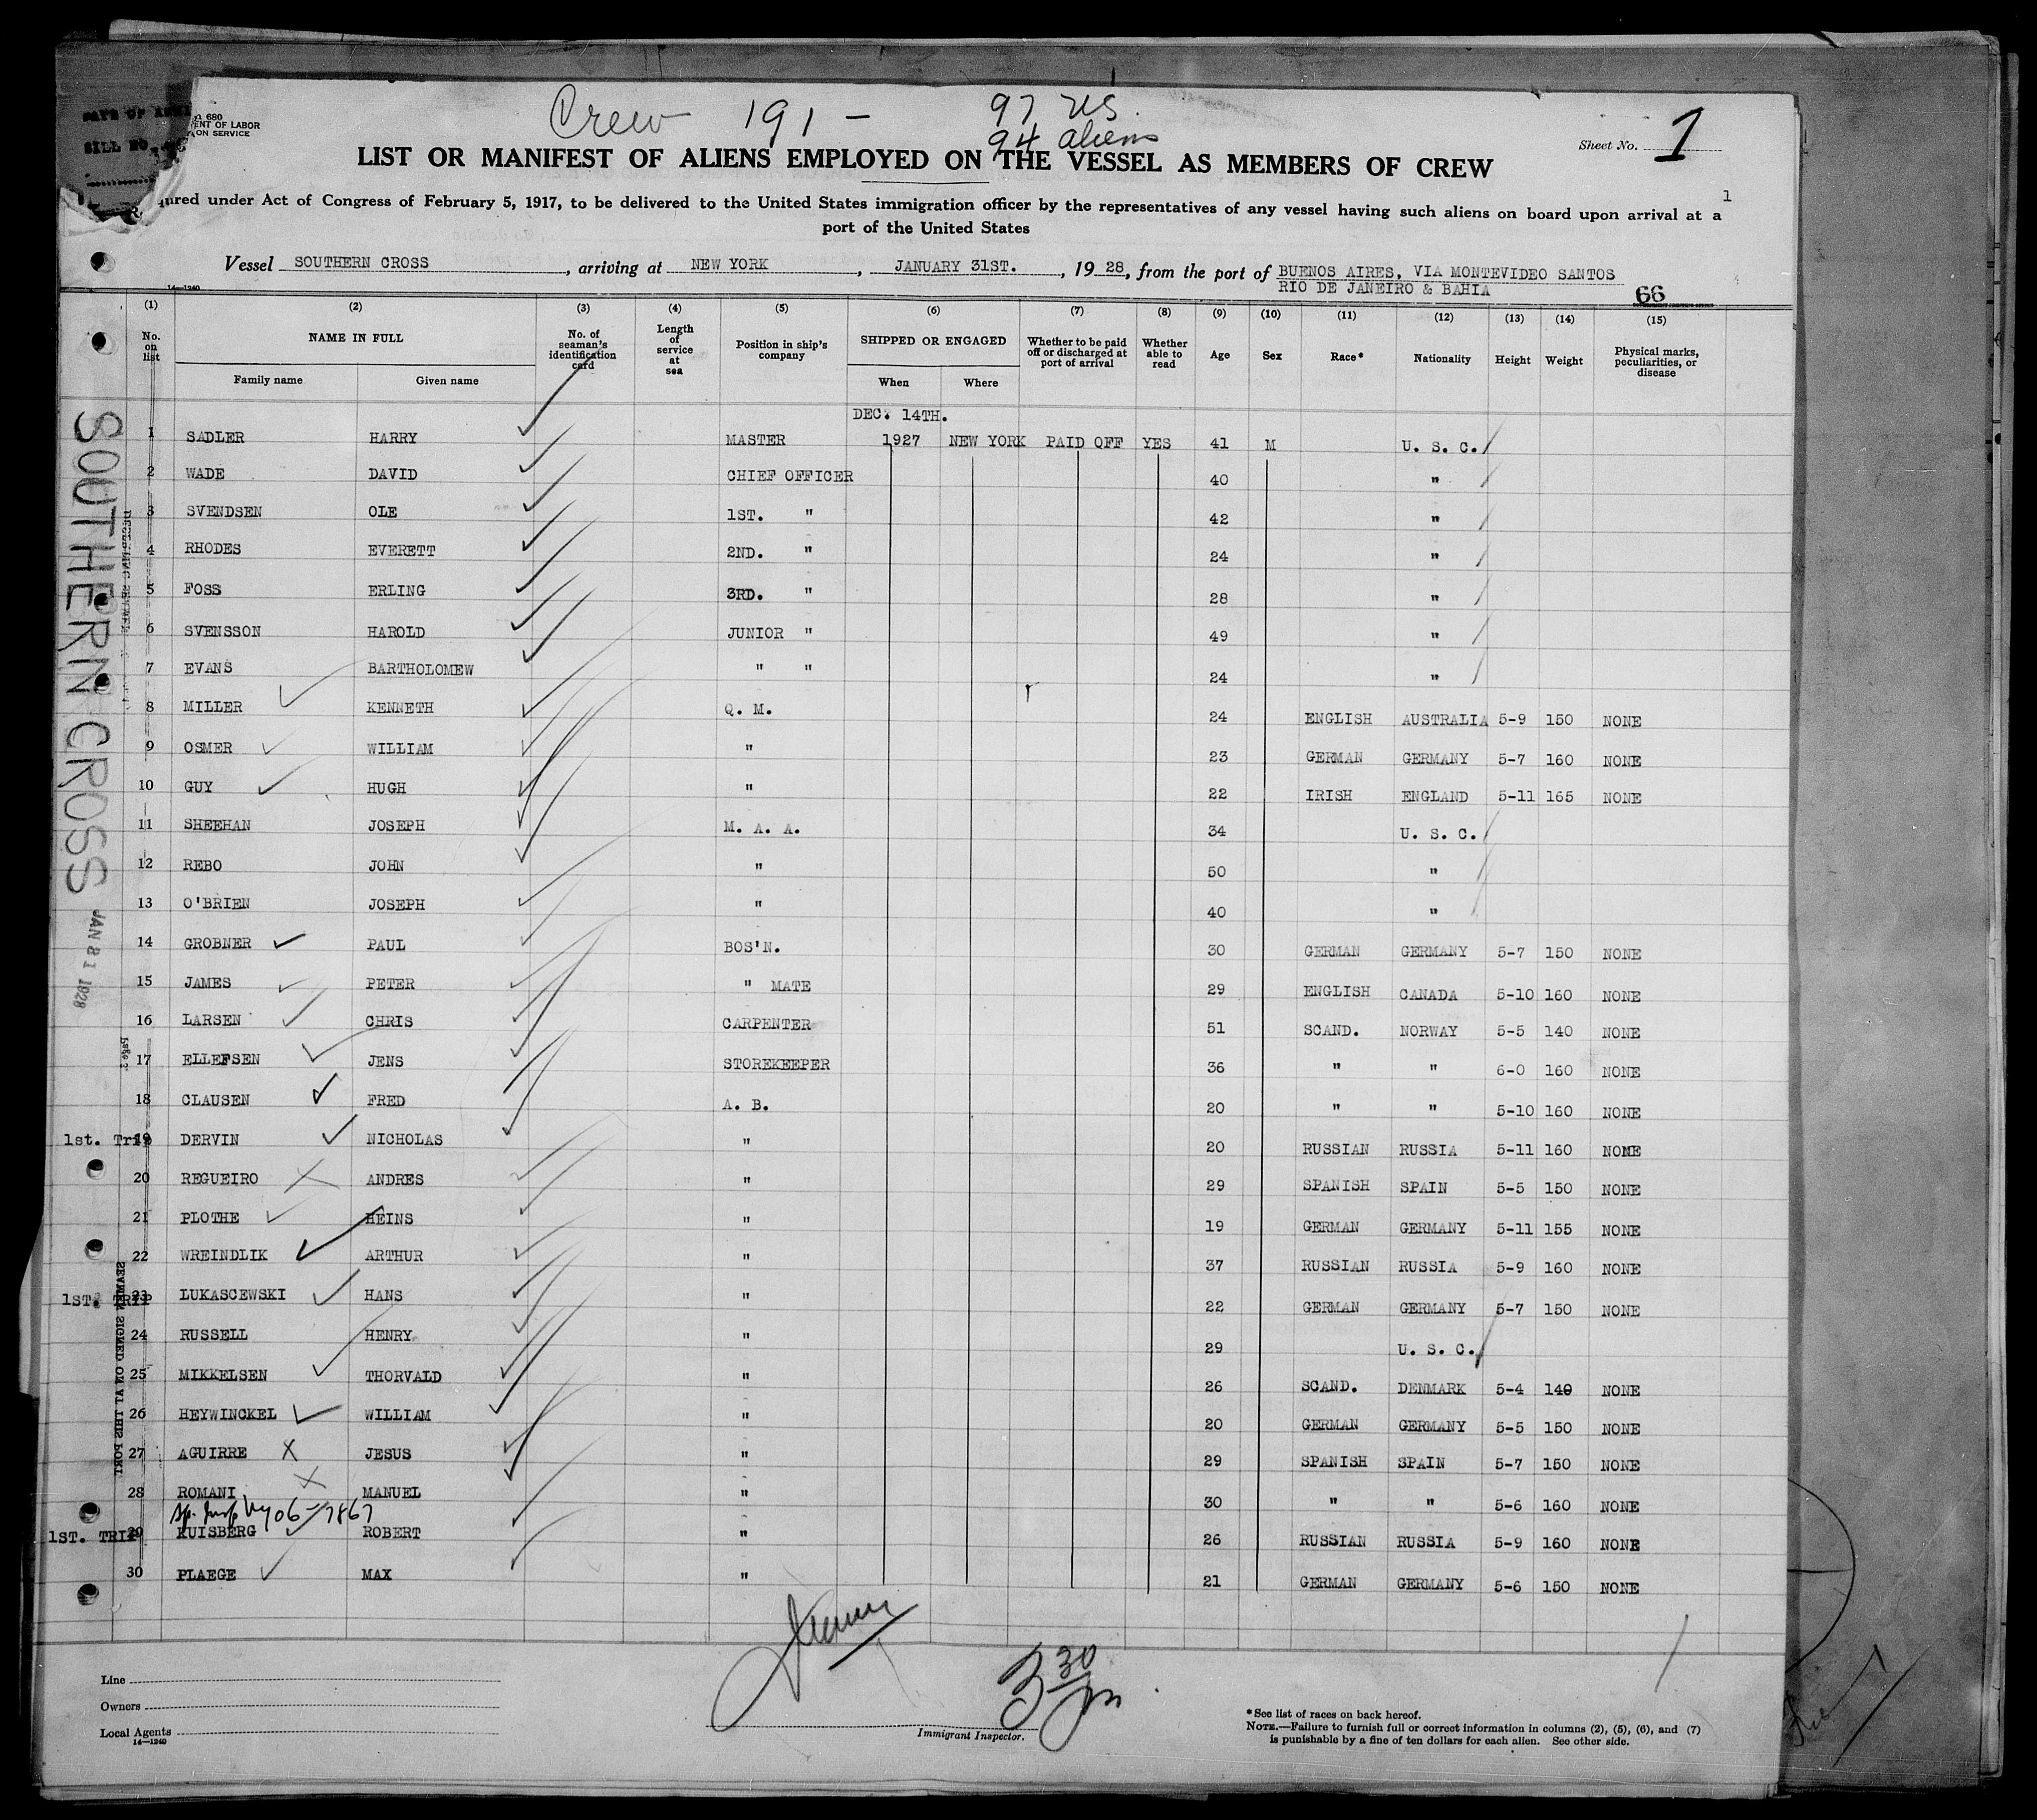 Crew 191 - 97 US
94 aliens
DATE OF
BILL NO.
680
ENT OF LABOR
ON SERVICE
Sheet No. 1
LIST OR MANIFEST OF ALIENS EMPLOYED ON THE VESSEL AS MEMBERS OF CREW
1
quired under Act of Congress of February 5, 1917, to be delivered to the United States immigration officer by the representatives of any vessel having such aliens on board upon arrival at a
port of the United States
Vessel SOUTHERN CROSS, arriving at NEW YORK, JANUARY 31ST., 1928, from the port of BUENOS AIRES, VIA MONTEVIDEO SANTOS
RIO DE JANEIRO & BAHIA
14—1240
66
(1) (2) (3) (4) (5) (6) (7) (8) (9) (10) (11) (12) (13) (14) (15)
No. on list NAME IN FULL No. of seaman's identification card Length of service at sea Position in ship's company SHIPPED OR ENGAGED Whether to be paid off or discharged at port of arrival Whether able to read Age Sex Race* Nationality Height Weight Physical marks, peculiarities, or disease
Family name Given name When Where
DEC. 14TH.
1 SADLER HARRY MASTER 1927 NEW YORK PAID OFF YES 41 M U. S. C.
2 WADE DAVID CHIEF OFFICER 40 "
3 SVENDSEN OLE 1ST. " 42 "
4 RHODES EVERETT 2ND. " 24 "
5 FOSS ERLING 3RD. " 28 "
6 SVENSSON HAROLD JUNIOR " 49 "
7 EVANS BARTHOLOMEW " " 24 "
8 MILLER KENNETH Q. M. 24 ENGLISH AUSTRALIA 5-9 150 NONE
9 OSMER WILLIAM " 23 GERMAN GERMANY 5-7 160 NONE
10 GUY HUGH " 22 IRISH ENGLAND 5-11 165 NONE
11 SHEEHAN JOSEPH M. A. A. 34 U. S. C.
12 REBO JOHN " 50 "
13 O'BRIEN JOSEPH " 40 "
14 GROBNER PAUL BOS'N. 30 GERMAN GERMANY 5-7 150 NONE
15 JAMES PETER " MATE 29 ENGLISH CANADA 5-10 160 NONE
16 LARSEN CHRIS CARPENTER 51 SCAND. NORWAY 5-5 140 NONE
17 ELLEFSEN JENS STOREKEEPER 36 " " 6-0 160 NONE
18 CLAUSEN FRED A. B. 20 " " 5-10 160 NONE
1st. Trip 19 DERVIN NICHOLAS " 20 RUSSIAN RUSSIA 5-11 160 NONE
20 REGUEIRO ANDRES " 29 SPANISH SPAIN 5-5 150 NONE
21 PLOTHE HEINS " 19 GERMAN GERMANY 5-11 155 NONE
22 WREINDLIK ARTHUR " 37 RUSSIAN RUSSIA 5-9 160 NONE
1ST. TRIP 23 LUKASCEWSKI HANS " 22 GERMAN GERMANY 5-7 150 NONE
24 RUSSELL HENRY " 29 U. S. C.
25 MIKKELSEN THORVALD " 26 SCAND. DENMARK 5-4 140 NONE
26 HEYWINCKEL WILLIAM " 20 GERMAN GERMANY 5-5 150 NONE
27 AGUIRRE JESUS " 29 SPANISH SPAIN 5-7 150 NONE
28 ROMANI MANUEL " 30 " " 5-6 160 NONE
06-7867
1ST. TRIP 29 KUISBERG ROBERT " 26 RUSSIAN RUSSIA 5-9 160 NONE
30 PLAEGE MAX " 21 GERMAN GERMANY 5-6 150 NONE
SOUTHERN CROSS
JAN 31 1928
Page 2.
SEAMEN SIGNED ON AT THIS PORT
3 30
Line
Owners
Local Agents
14—1240
Immigrant Inspector.
*See list of races on back hereof.
NOTE.—Failure to furnish full or correct information in columns (2), (5), (6), and (7)
is punishable by a fine of ten dollars for each alien. See other side.